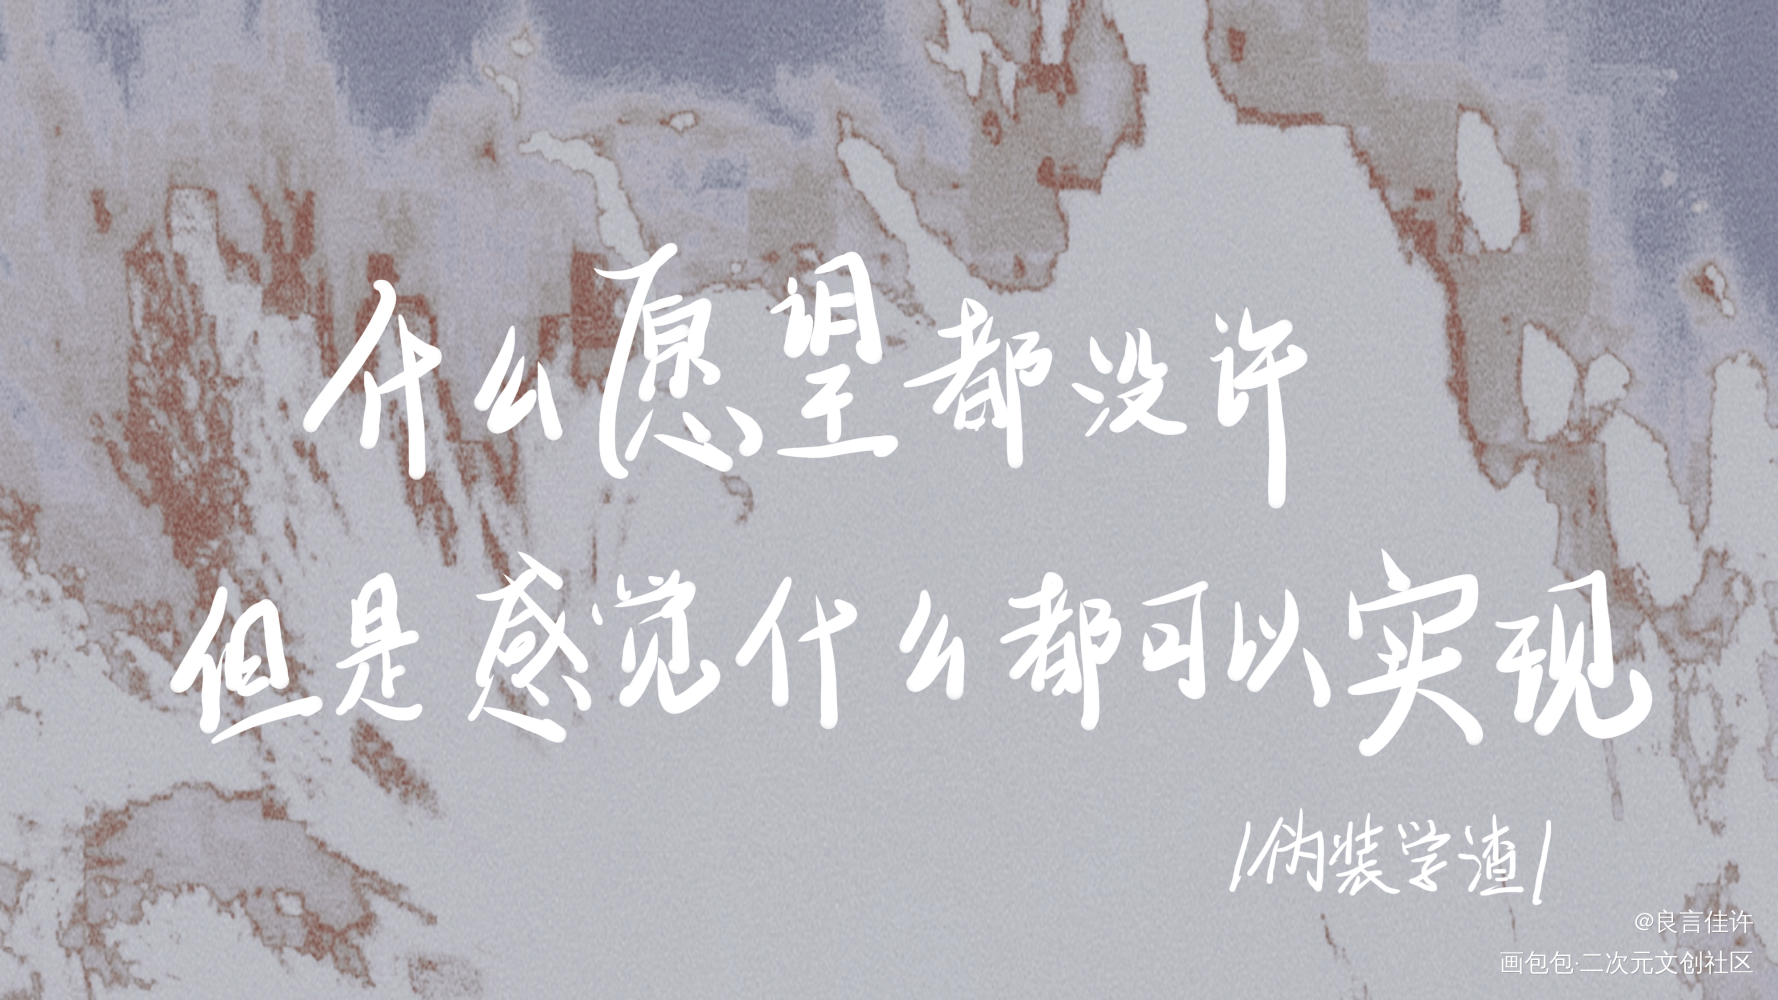 什么愿望都没许
但是感觉什么都可以实现
/伪装学渣/
@良言佳许
画包包·二次元文创社区